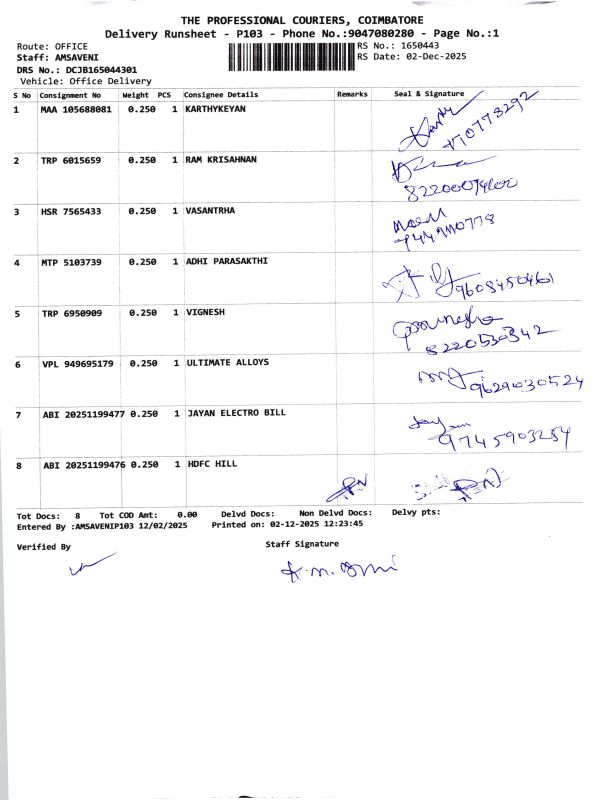 THE PROFESSIONAL COURIERS, COIMBATORE
Delivery Runsheet - P103 - Phone No.:9047080280 - Page No.:1
Route: OFFICE RS No.: 1650443
Staff: AMSAVENI RS Date: 02-Dec-2025
DRS No.: DCJB165044301
Vehicle: Office Delivery
S No Consignment No Weight PCS Consignee Details Remarks Seal & Signature
1 MAA 105688081 0.250 1 KARTHYKEYAN
2 TRP 6015659 0.250 1 RAM KRISAHNAN
3 HSR 7565433 0.250 1 VASANTRHA
4 MTP 5103739 0.250 1 ADHI PARASAKTHI
9608450461
5 TRP 6950909 0.250 1 VIGNESH
8220530342
6 VPL 949695179 0.250 1 ULTIMATE ALLOYS
9629030524
7 ABI 20251199477 0.250 1 JAYAN ELECTRO BILL
9745903254
8 ABI 20251199476 0.250 1 HDFC HILL
Tot Docs: 8 Tot COD Amt: 0.00 Delvd Docs: Non Delvd Docs: Delvy pts:
Entered By :AMSAVENIP103 12/02/2025 Printed on: 02-12-2025 12:23:45
Verified By Staff Signature